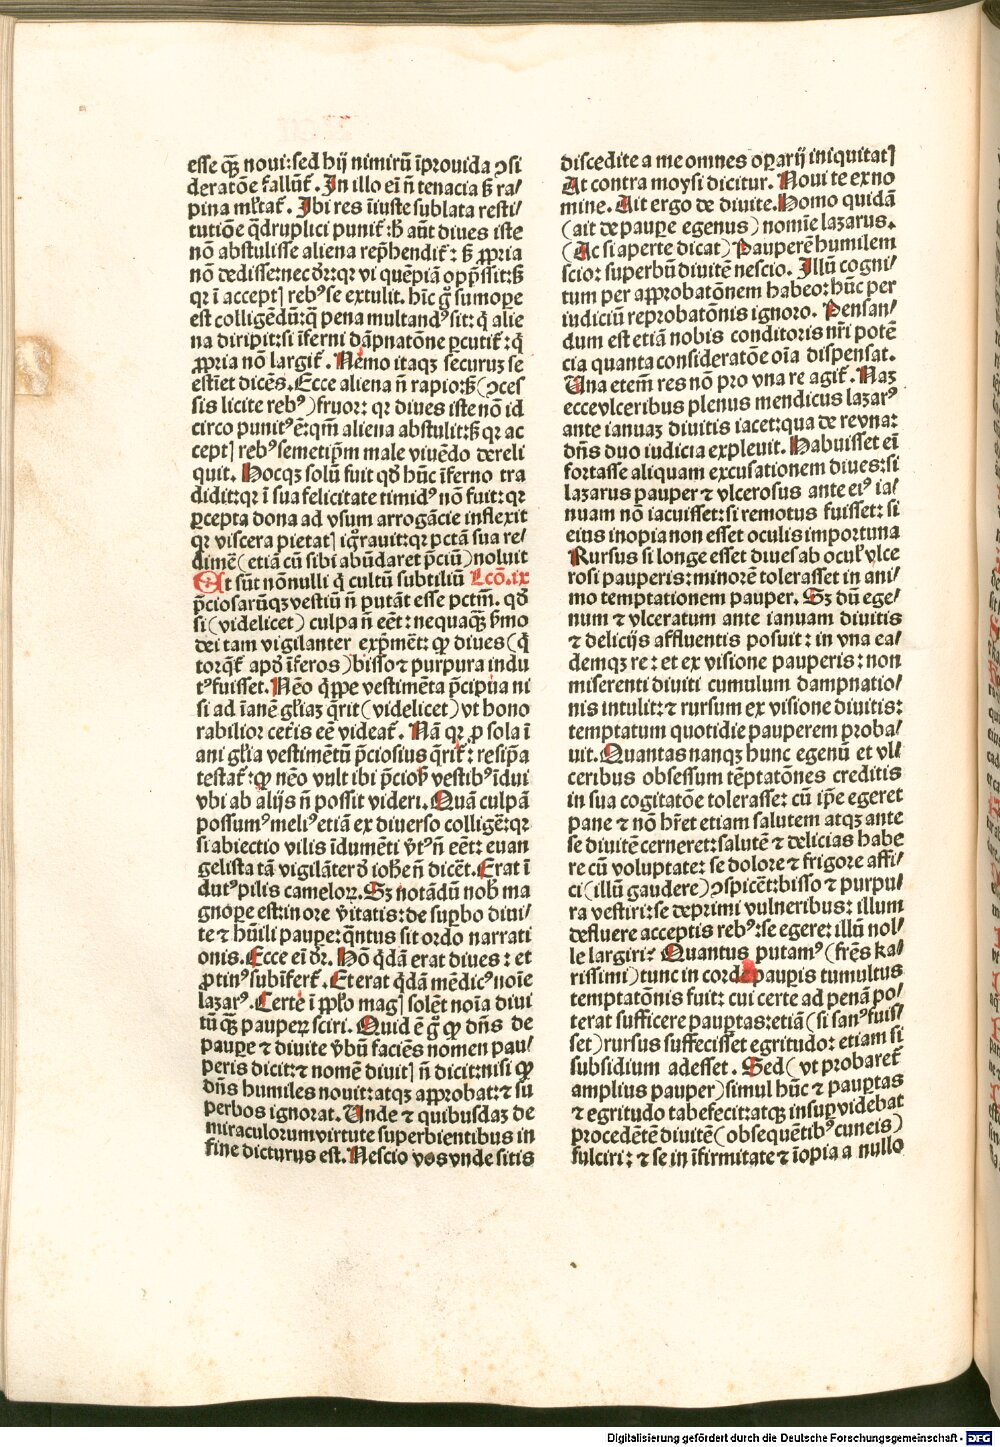 esse qꝫ̃ noui: sed hij nimirū īprouida ꝯsi
deratōe fallūt᷑. In illo eī ñ tenacia ß ra/
pina ml̄tat᷑. Ibi res īiuste sublata resti/
tutiōe q̄druplici punit᷑: h̄ aūt diues iste
nō abstulisse aliena rep̄hendit᷑: ß ꝓpria
nō dedisse: nec dr̄: qꝛ vi quēpiā opp̄ssit: ß
qꝛ ī acceptꝭ rebꝰ se extulit. hīc gͦ sumope
est colligēdū: q̄ pena multandꝰ sit: q̇ alie
na diripit: si īferni dāpnatōne ꝑcutit᷑: q̇
ꝓpria nō largit᷑. Nēmo itaqꝫ securus se
estīet dicēs. Ecce aliena ñ rapio: ß (ꝯces
sis licite rebꝰ) fruor: qꝛ diues iste nō id
circo punitꝰ ē: qm̄ aliena abstulit: ß qꝛ ac
ceptꝭ rebꝰ semetip̄m male viuēdo dereli
quit. Hocqꝫ solū fuit qd̄ hūc īferno tra
didit: qꝛ ī sua felicitate timidꝰ nō fuit: qꝛ
ꝑcepta dona ad vsum arrogācie inflexit
qꝛ viscera pietatꝭ ignͦrauit: qꝛ pctā sua re/
dimē (etiā cū sibi abūdaret p̄ciū) noluit
At sūt nōnulli q̇ cultū subtiliū Lcō. ix
p̄ciosarūqꝫ vestiū ñ putāt esse pctm̄. qd̄
si (videlicet) culpa ñ eēt: nequaqꝫ̃ ẜmo
dei tam vigilanter exp̄mēt: ꝙ diues (q̇
torq̄t᷑ apd̄ īferos) bisso ⁊ purpura indu
tꝰ fuisset. Nēo q̇ppe vestimēta p̄cipua ni
si ad īanē gl̄iaꝫ q̄rit (videlicet) vt hono
rabilior cetis eē videat᷑. Nā qꝛ ꝓ sola ī
ani gl̄ia vestimētū p̄ciosius q̄rit᷑: res ip̄a
testat᷑: ꝙ nēo vult ibi p̄ciosꝭ vestibꝰ īdui
vbi ab alijs ñ possit videri. Quā culpā
possumꝰ meliꝰ etiā ex diuerso colligē: qꝛ
si abiectio vilis īdumēti ṽtꝰ ñ eēt: euan
gelista tā vigilāter d̄ ioh̄e ñ dicēt. Erat ī
dutꝰ pilis cameloꝝ. Sꝫ notādū nob̄ ma
gnope est: in ore ṽitatis: de supbo diui/
te ⁊ hūili paupe: q̄ntus sit ordo narrati
onis. Ecce eī dr̄. Hō q̇dā erat diues: et
ꝓtinꝰ subīfert᷑. Et erat q̇dā mēdicꝰ noīe
lazarꝰ. Certe ī ppl̄o magꝭ solēt noīa diui
tū qꝫ̃ paupeꝝ sciri. Quid ē gͦ ꝙ dn̄s de
paupe ⁊ diuite ṽbū faciēs nomen pau/
peris dicit: ⁊ nomē diuitꝭ ñ dicit: nisi ꝙ
dn̄s humiles nouit: atqꝫ approbat: ⁊ su
perbos ignorat. Unde ⁊ quibusdaꝫ de
miraculorum virtute superbientibus in
fine dicturus est. Nescio vos vnde sitis
discedite a me omnes opꝑarij iniquitatꝭ
At contra moysi dicitur. Noui te ex no
mine. Ait ergo de diuite. Homo quidā
(ait de paupe egenus) nomīe lazarus.
(Ac si aperte dicat) Pauperē humilem
scio: superbū diuitē nescio. Illū cogni/
tum per approbatōnem habeo: hūc per
iudiciū reprobatōnis ignoro. Pensan/
dum est etiā nobis conditoris nr̄i potē
cia quanta consideratōe oīa dispensat.
Una etem̄ res nō pro vna re agit᷑. Naꝫ
ecce vlceribus plenus mendicus lazarꝰ
ante ianuaꝫ diuitis iacet: qua de re vna:
dn̄s duo iudicia expleuit. Habuisset eī
fortasse aliquam excusationem diues: si
lazarus pauper ⁊ vlcerosus ante eiꝰ ia/
nuam nō iacuisset: si remotus fuisset: si
eius inopia non esset oculis importuna
Rursus si longe esset diues ab oculꝭ vlce
rosi pauperis: minorē tolerasset in ani/
mo temptationem pauper. Sꝫ dū ege/
num ⁊ vlceratum ante ianuam diuitis
⁊ delicijs affluentis posuit: in vna ea/
demqꝫ re: et ex visione pauperis: non
miserenti diuiti cumulum dampnatio/
nis intulit: ⁊ rursum ex visione diuitis:
temptatum quotidie pauperem proba/
uit. Quantas nanqꝫ hunc egenū et vl/
ceribus obsessum tēptatōnes creditis
in sua cogitatōe tolerasse: cū ip̄e egeret
pane ⁊ nō hr̄et etiam salutem atqꝫ ante
se diuitē cerneret: salutē ⁊ delicias habe
re cū voluptate: se dolore ⁊ frigore affi/
ci (illū gaudere) ꝯspicēt: bisso ⁊ purpu/
ra vestiri: se deprimi vulneribus: illum
defluere acceptis rebꝰ: se egere: illū nol/
le largiri: Quantus putamꝰ (frēs ka/
rissimi) tunc in corde paupis tumultus
temptatōnis fuit: cui certe ad penā po/
terat sufficere pauptas: etiā (si sanꝰ fuis/
set) rursus suffecisset egritudo: etiam si
subsidium adesset. Sed (vt probaret᷑
amplius pauper) simul hūc ⁊ pauptas
⁊ egritudo tabefecit: atqꝫ insup videbat
procedētē diuitē (obsequētibꝰ cuneis)
fulciri: ⁊ se in īfirmitate ⁊ īopia a nullo
Digitalisierung gefördert durch die Deutsche Forschungsgemeinschaft - DFG